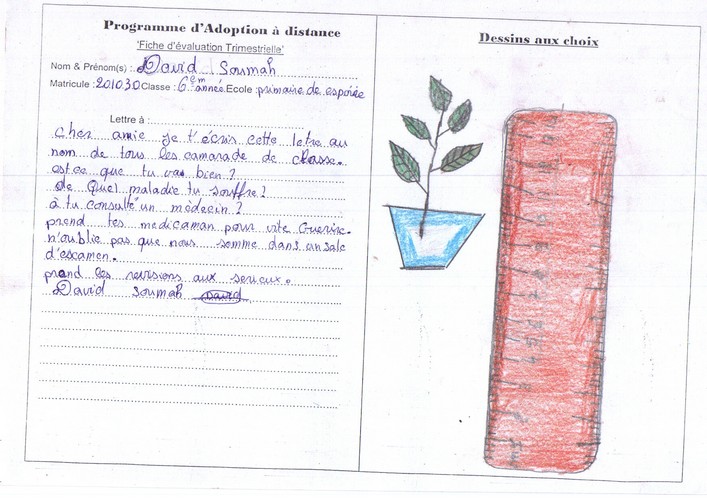 Programme d'Adoption à distance
'Fiche d'évaluation Trimestrielle'
Nom & Prénom(s) : David Soumah
Matricule : 201030 Classe : 6ème année. Ecole : primaire de espoirée
Lettre à :
Cher amie je t'écris cette letre au
nom de tous les camarade de classe.
est ce que tu vas bien ?
de Quel maladie tu souffre ?
à tu consulté un mèdecin ?
prend tes medicaman pour vite Guerire.
n'oublie pas que nous somme dans un sale
d'escamen.
prand les revisions aux serieux.
David Soumah David
Dessins aux choix